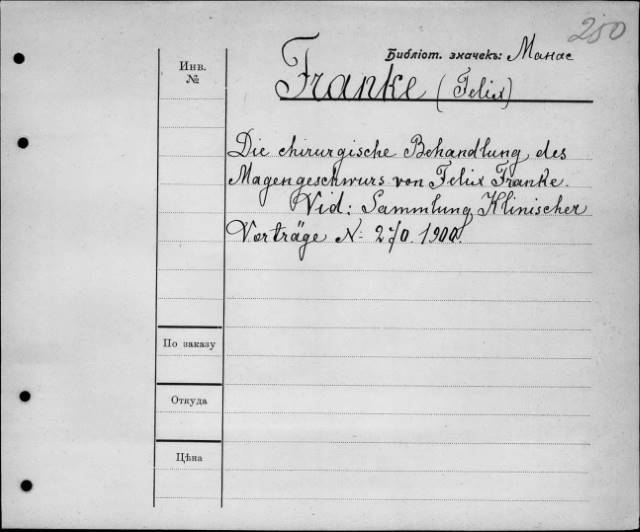 250
Библіот. значекъ: Манас
Инв.
№
Franke (Felix)
Die chirurgische Behandlung des
Magengeschwurs von Felix Franke.
Vid: Sammlung Klinischer
Vorträge N: 270. 1900.
По заказу
Откуда
Цѣна